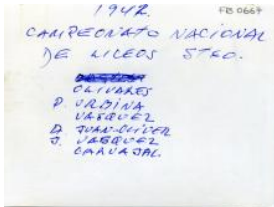 1942.
FB0667
CAMPEONATO NACIONAL
DE LICEOS STGO.
OLIVARES
P. URBINA
VASQUEZ
D. JUAN OLIVER
J. VASQUEZ
CARVAJAL.